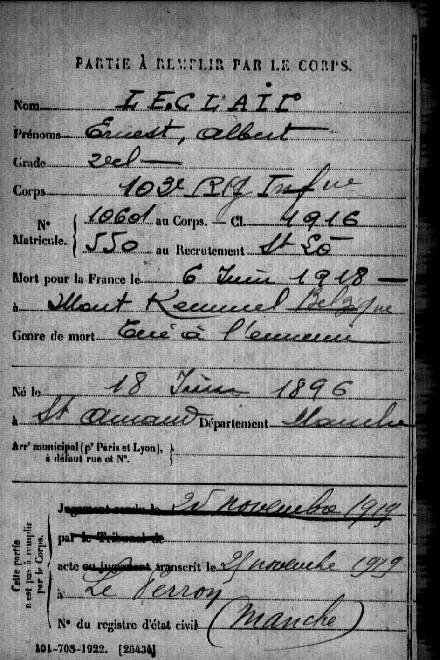 PARTIE À REMPLIR PAR LE CORPS.
Nom LECLAIR
Prénoms Ernest, Albert
Grade
Corps 103e Rgt Inf
N° Matricule. 10601 au Corps. — Cl. 1916
550 au Recrutement St Lô
Mort pour la France le 6 Juin 1918
à Mont Kemmel Belgique
Genre de mort Tué à l'ennemi
Né le 18 Juin 1896
à St Amand Département Manche
Arrt municipal (pr Paris et Lyon),
à défaut rue et N°.
Cette partie n'est pas à remplir par le Corps.
Jugement rendu le 25 novembre 1919
par le Tribunal de
acte ou jugement transcrit le 25 novembre 1919
à Le Perron
N° du registre d'état civil (Manche)
101-708-1922. [26434]